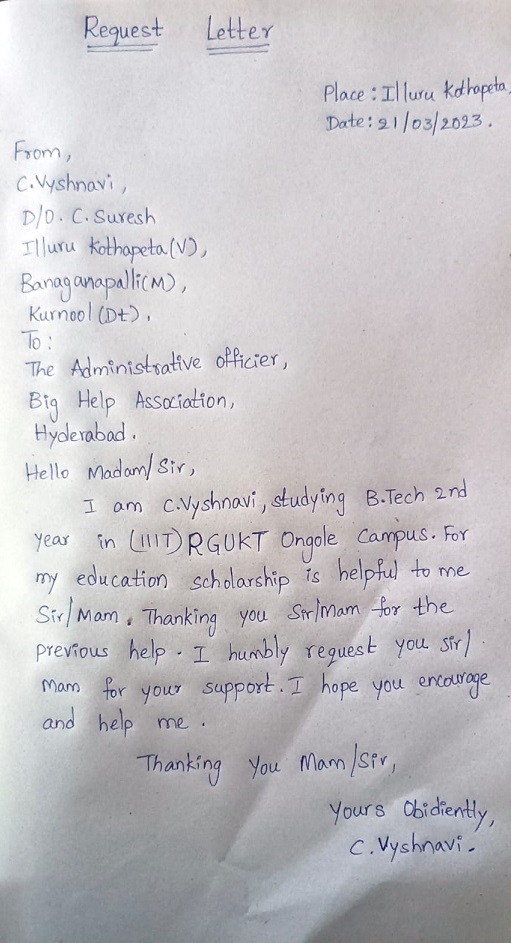 Request Letter
Place : Illuru Kothapeta.
Date : 21/03/2023.
From,
C.Vyshnavi,
D/O. C. Suresh
Illuru Kothapeta(V),
Banaganapalli(M),
Kurnool (Dt).
To :
The Administrative officier,
Big Help Association,
Hyderabad.
Hello Madam/Sir,
I am C.Vyshnavi, studying B.Tech 2nd
year in (IIIT) RGUKT Ongole Campus. For
my education scholarship is helpful to me
Sir/Mam. Thanking you Sir/mam for the
previous help. I humbly request you sir/
Mam for your support. I hope you encourage
and help me.
Thanking You Mam/Sir,
Yours Obidiently,
C. Vyshnavi.